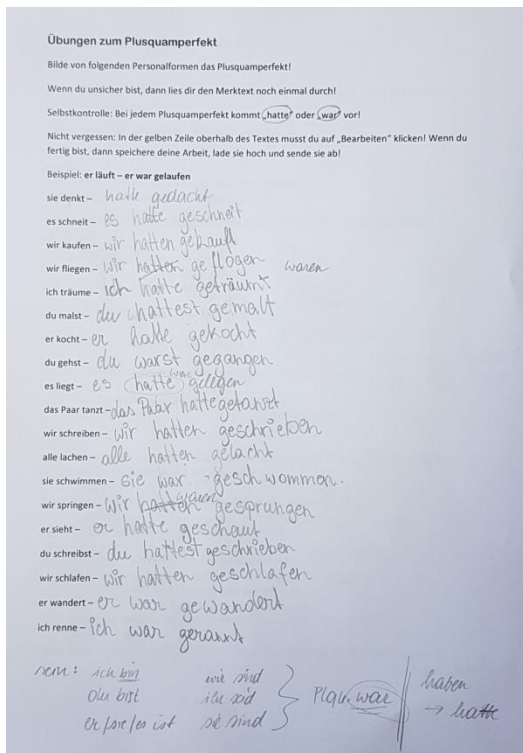 Übungen zum Plusquamperfekt
Bilde von folgenden Personalformen das Plusquamperfekt!
Wenn du unsicher bist, dann lies dir den Merktext noch einmal durch!
Selbstkontrolle: Bei jedem Plusquamperfekt kommt „hatte" oder „war" vor!
Nicht vergessen: In der gelben Zeile oberhalb des Textes musst du auf „Bearbeiten" klicken! Wenn du
fertig bist, dann speichere deine Arbeit, lade sie hoch und sende sie ab!
Beispiel: er läuft – er war gelaufen
sie denkt – hatte gedacht
es schneit – es hatte geschneit
wir kaufen – wir hatten gekauft
wir fliegen – wir hatten geflogen waren
ich träume – ich hatte geträumt
du malst – du hattest gemalt
er kocht – er hatte gekocht
du gehst – du warst gegangen
es liegt – es (hatte) war gelegen
das Paar tanzt – das Paar hatte getanzt
wir schreiben – wir hatten geschrieben
alle lachen – alle hatten gelacht
sie schwimmen – sie war geschwommen.
wir springen – wir hatten waren gesprungen
er sieht – er hatte geschaut
du schreibst – du hattest geschrieben
wir schlafen – wir hatten geschlafen
er wandert – er war gewandert
ich renne – ich war gerannt
ich bin wir sind haben
du bist ihr seid } Plqu. war
er/sie/es ist sie sind → hatte